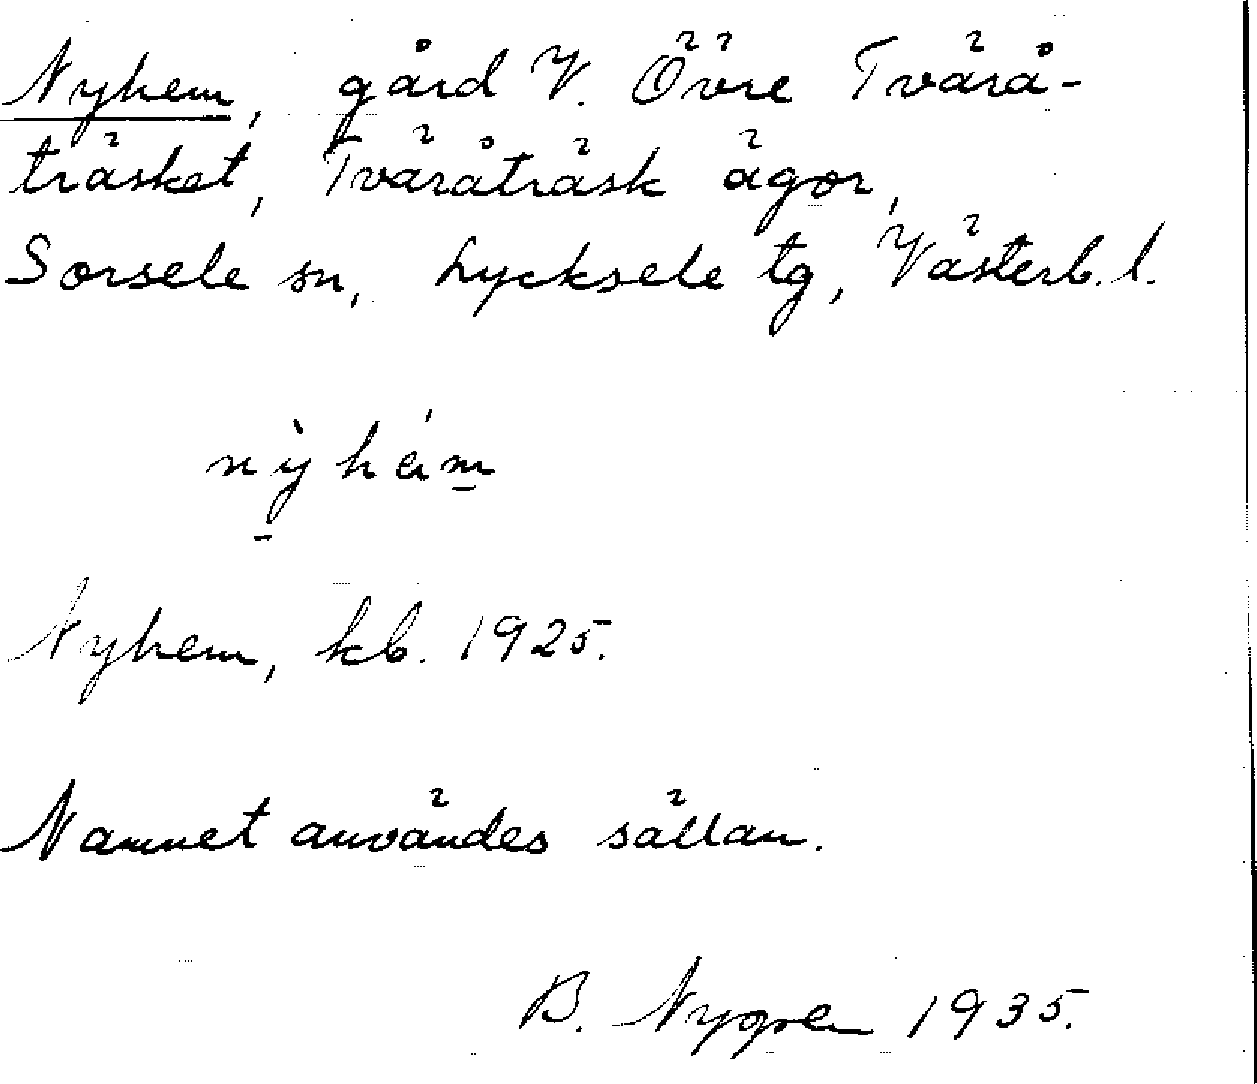 Nyhem, gård V. Övre Tvärå-
träsket, Tväråträsk ägor,
Sorsele sn, Lycksele tg, Västerb. l.
nỳhém
Nyhem, kb. 1925.
Namnet användes sällan.
B. Nygren 1935.